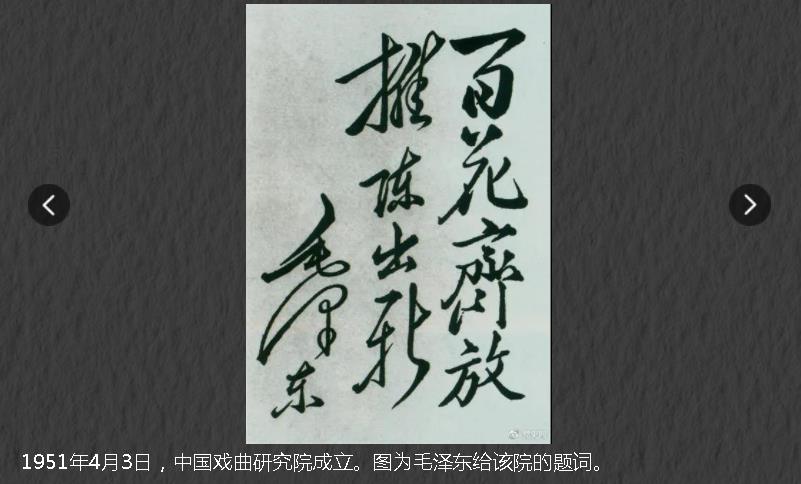 百花齊放
推陈出新
毛泽东
1951年4月3日，中国戏曲研究院成立。图为毛泽东给该院的题词。